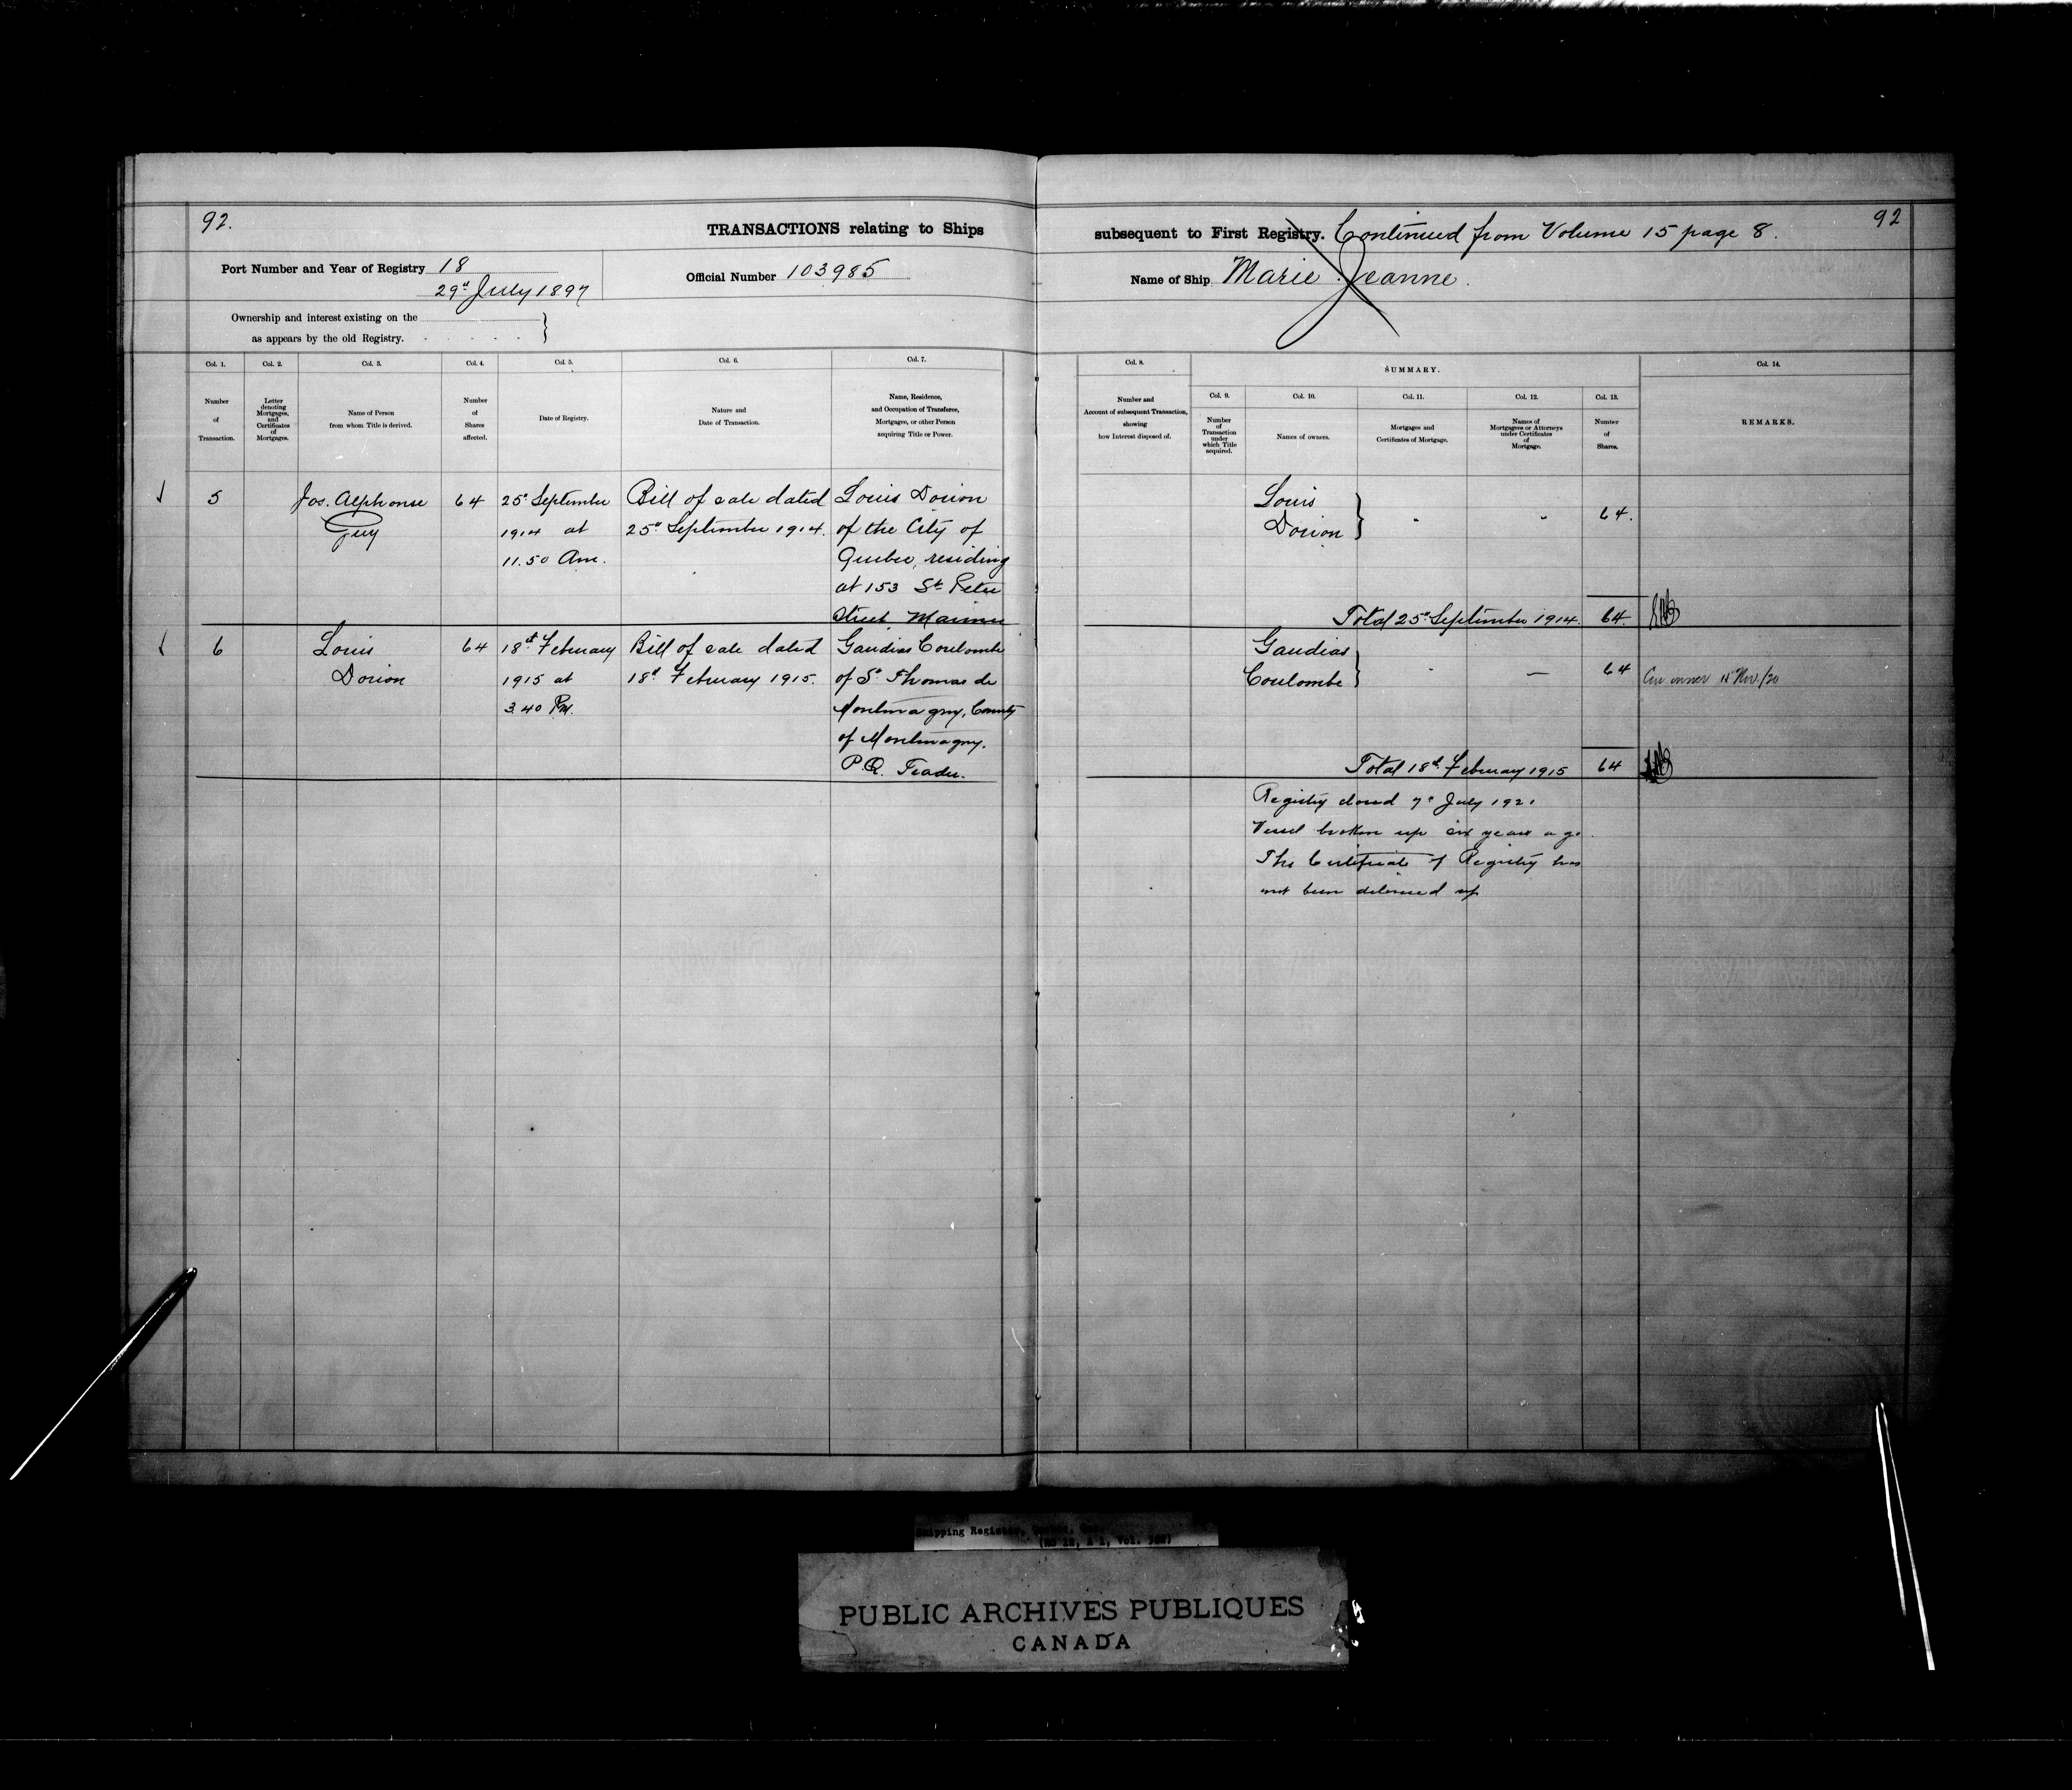 92.
TRANSACTIONS relating to Ships
subsequent to First Registry. Continued from Volume 15 page 8.
92
Port Number and Year of Registry 18
29th July 1897
Official Number 103985
Name of Ship Marie Jeanne.
Ownership and interest existing on the
as appears by the old Registry.
Col. 1.
Number
of
Transaction.
Col. 2.
Letter
denoting
Mortgages,
and
Certificates
of
Mortgages.
Col. 3.
Name of Person
from whom Title is derived.
Col. 4.
Number
of
Shares
affected.
Col. 5.
Date of Registry.
Col. 6.
Nature and
Date of Transaction.
Col. 7.
Name, Residence,
and Occupation of Transferee,
Mortgagee, or other Person
acquiring Title or Power.
Col. 8.
Number and
Account of subsequent Transaction,
showing
how Interest disposed of.
SUMMARY.
Col. 9.
Number
of
Transaction
under
which Title
acquired.
Col. 10.
Names of owners.
Col. 11.
Mortgages and
Certificates of Mortgage.
Col. 12.
Names of
Mortgagees or Attorneys
under Certificates
of
Mortgage.
Col. 13.
Number
of
Shares.
Col. 14.
REMARKS.
5
Jos. Alphonse
Guy
64
25th September
1914 at
11.50 Am.
Bill of sale dated
25th September 1914.
Louis Dorion
of the City of
Quebec, residing
at 153 St Peter
Street, Mariner
Louis
Dorion
64.
Total 25th September 1914.
64.
6
Louis
Dorion
64
18th February
1915 at
3.40 Pm.
Bill of sale dated
18th February 1915.
Gaudias Coulombe
of St Thomas de
Montmagny, County
of Montmagny.
P.Q. Trader.
Gaudias
Coulombe
64
owner 15 Nov/20
Total 18th February 1915
64
Registry closed 7th July 1921
Vessel broken up six years ago.
The Certificate of Registry has
not been delivered up
Shipping Register,
PUBLIC ARCHIVES PUBLIQUES
CANADA